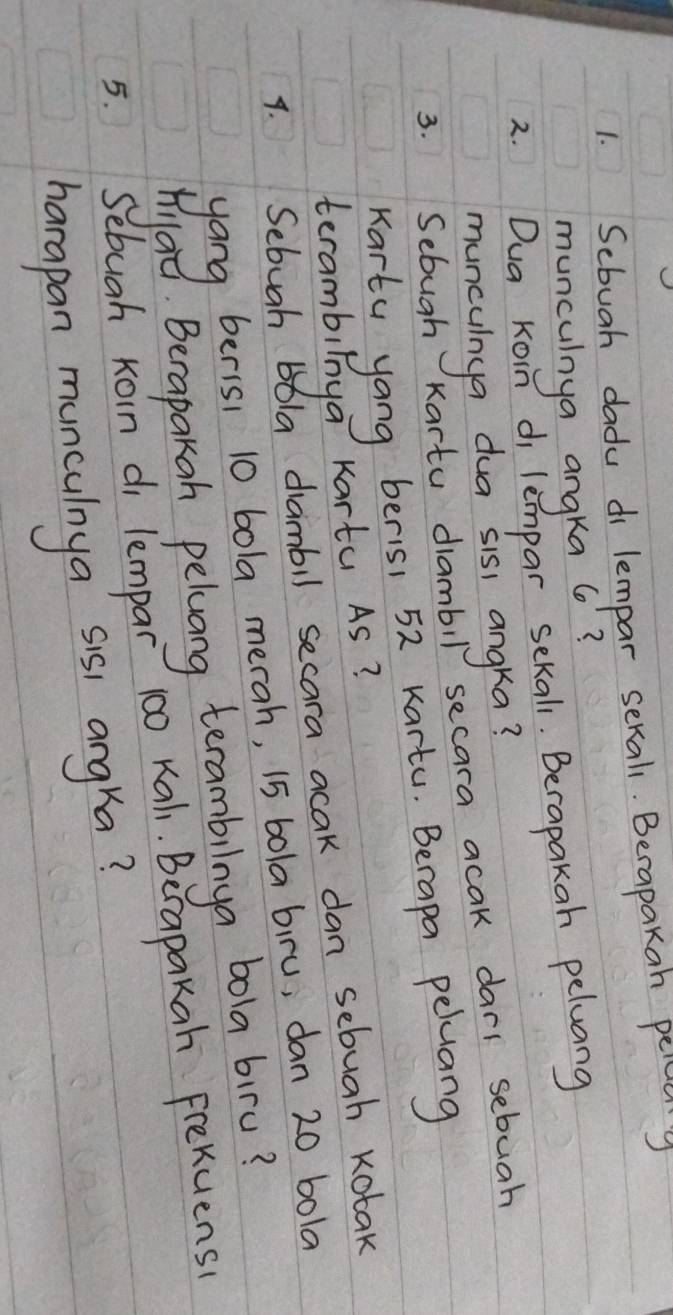 1. Sebuah dadu di lempar sekali. Berapakah peluang
munculnya angka 6?
2. Dua koin di lempar sekali. Berapakah peluang
munculnya dua sisi angka?
3. Sebuah kartu diambil secara acak dari sebuah
kartu yang berisi 52 kartu. Berapa peluang
terambilnya kartu As?
4. Sebuah bola diambil secara acak dan sebuah kotak
yang berisi 10 bola merah, 15 bola biru, dan 20 bola
Hijau. Berapakah peluang terambilnya bola biru?
5. Sebuah koin di lempar 100 kali. Berapakah Frekuensi
harapan munculnya sisi angka?